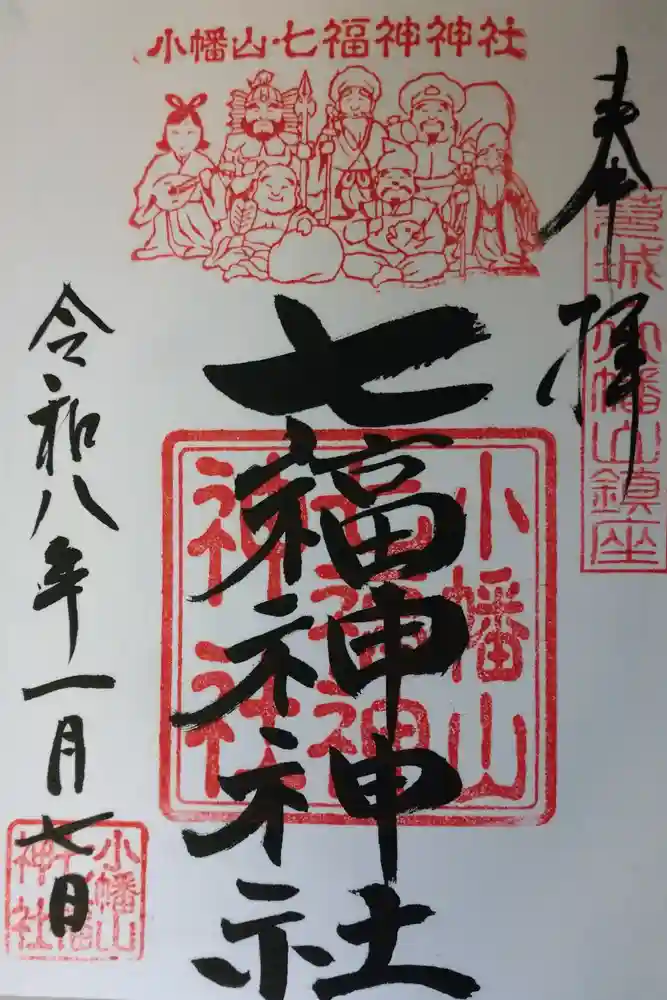 小幡山七福神神社
奉拝
城小幡山鎮座
七福神神社
小幡山
七福神
神社
令和八年一月七日
小幡山
神社